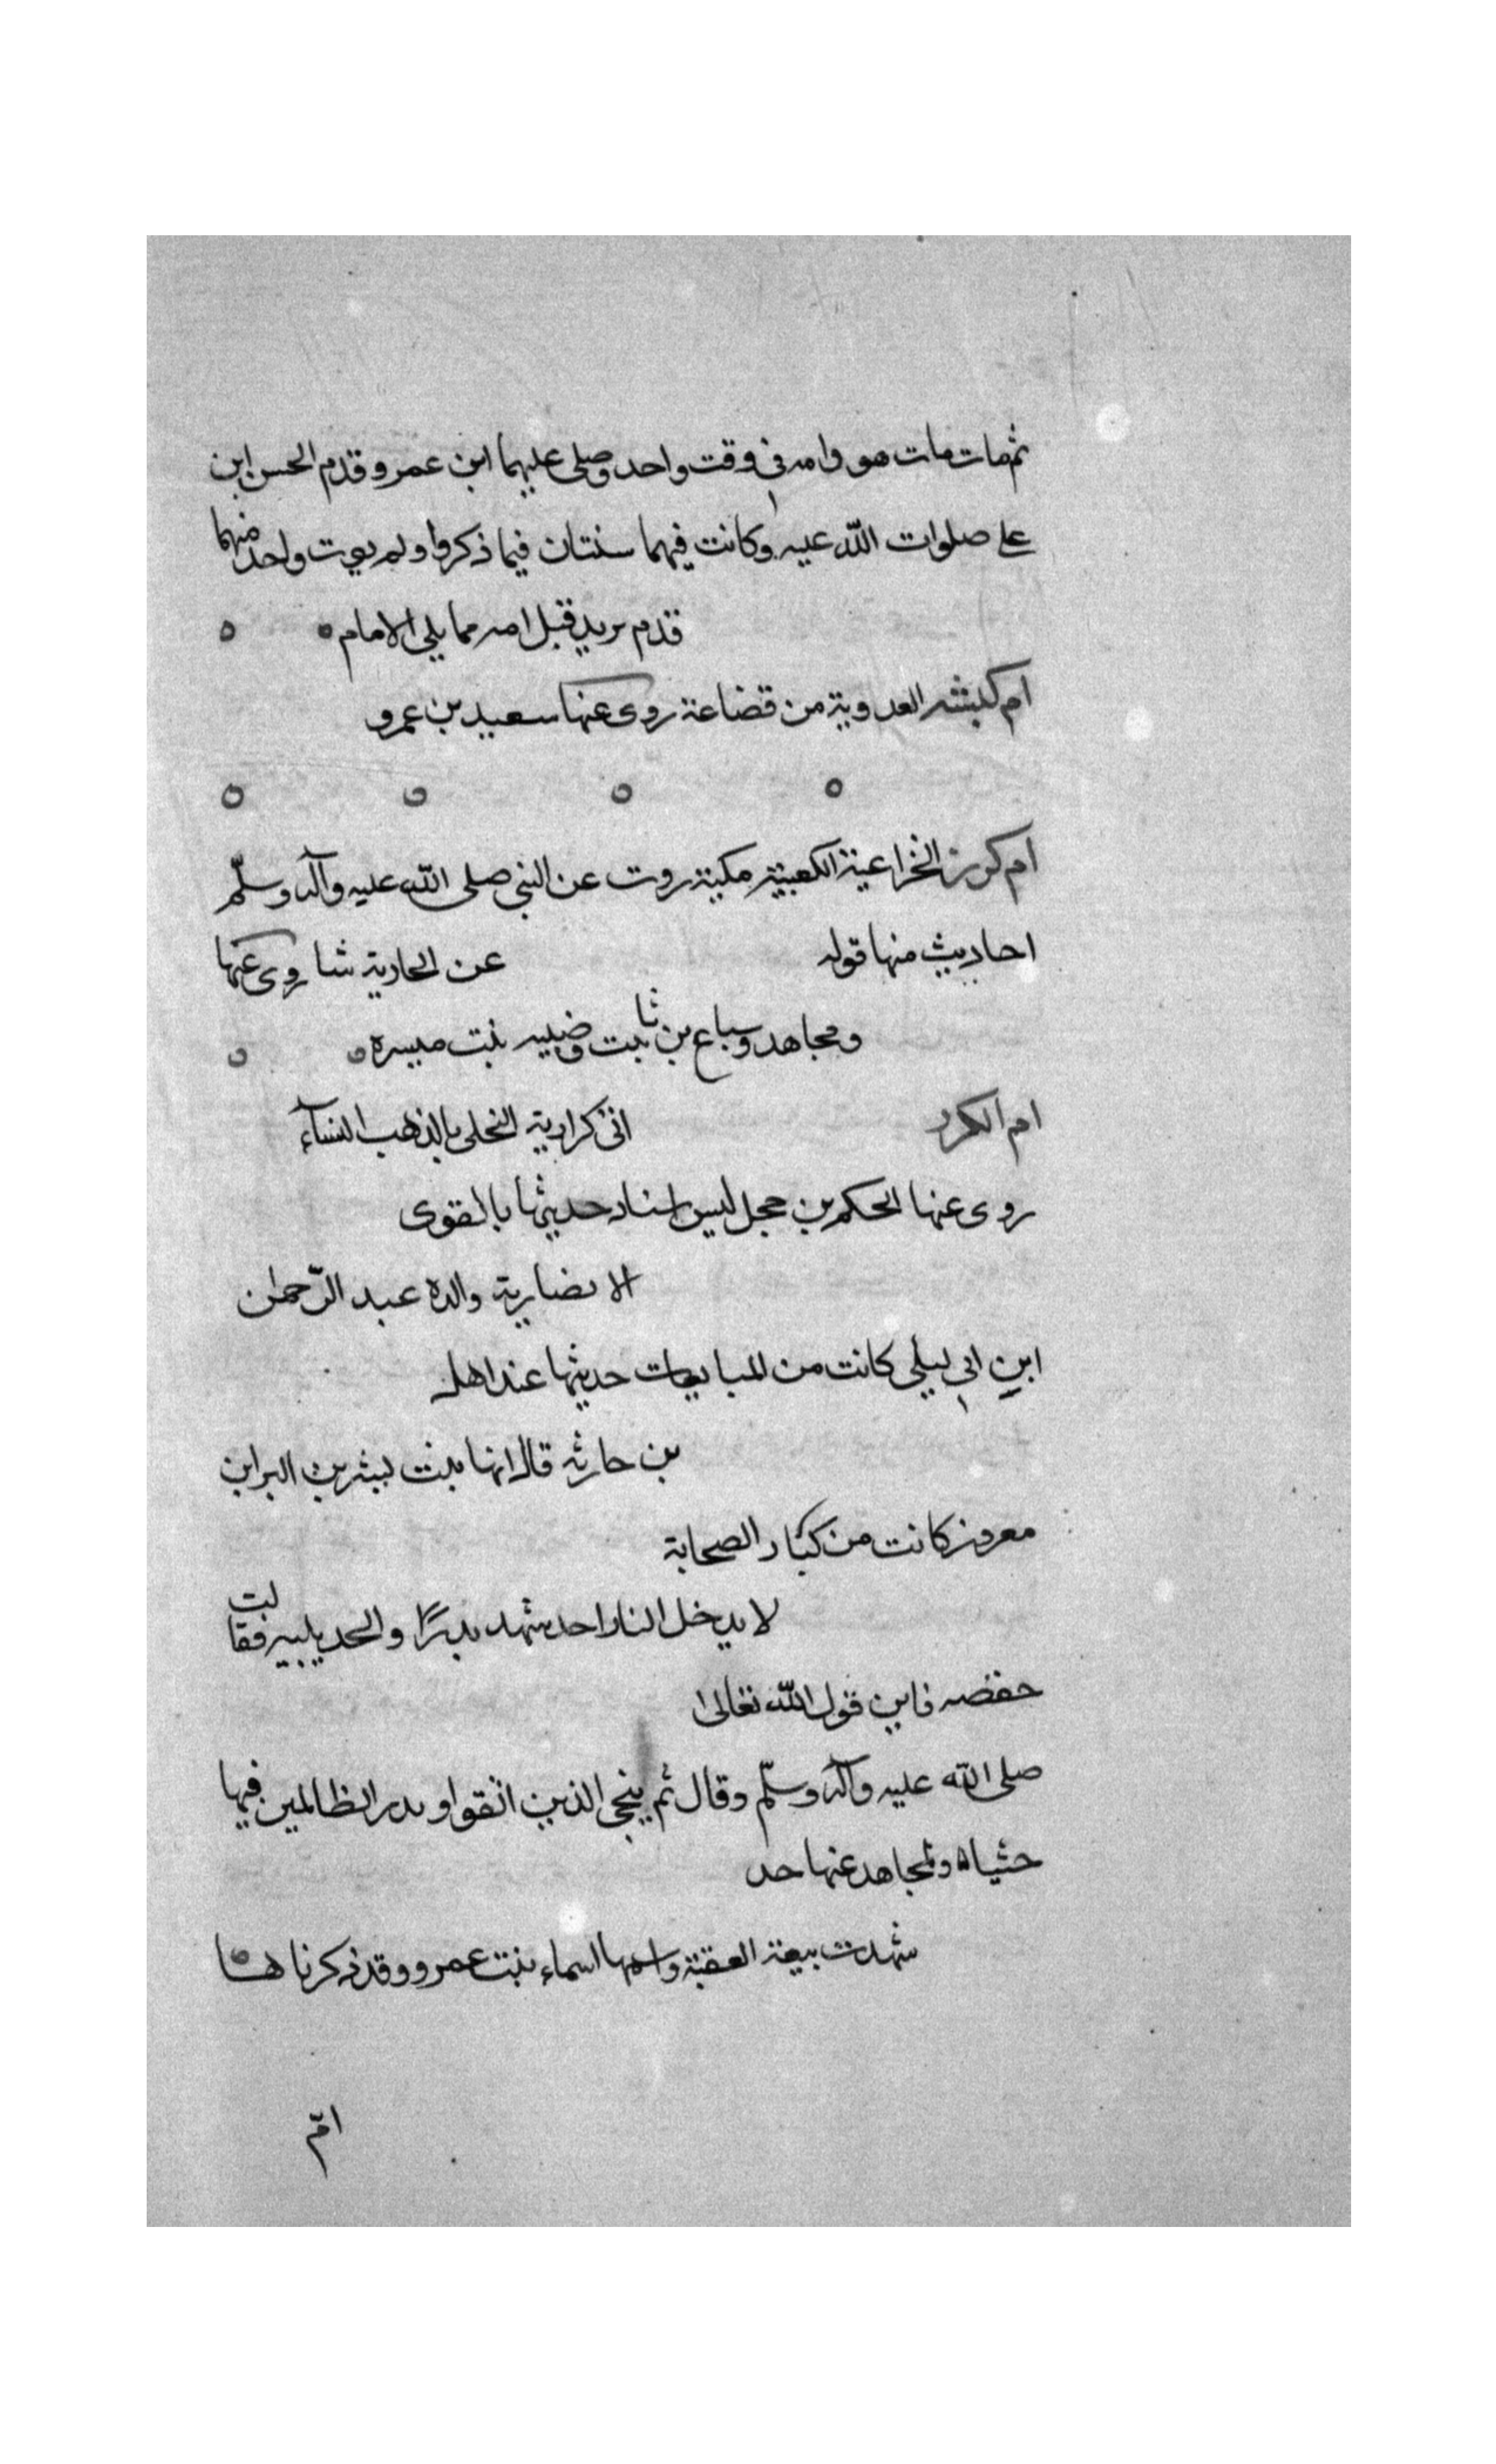 ثم مات مات هو وامه في وقت واحد وصلى عليهما ابن عمر وقدم الحسن ابن
على صلوات الله عليه وكانت فيهما سنتان فيما ذكروا ولم يورت واحد منهما
قدم يريد قبل امه مما يلي الامام
ام كبشه العدوية من قضاعة روى عنها سعيد بن عمرو
ام كرز الخزاعية الكعبية مكية روت عن النبي صلى الله عليه وآله وسلّم
احاديث منها قوله عن الجارية شا روى عنها
ومجاهد وسباع بن ثابت وضبيه بنت ميسره
ام الكرد التحلى بالذهب للنساء
روى عنها الحكم بن حجل ليس اسناد حديثها بالقوى
الانصارية والده عبد الرّحمن
ابن ابي ليلى كانت من المبايعات حديثها عند اهله
بن حارثه قال انها بنت بشر بن البرا بن
معرور كانت من كبار الصحابة
لا يدخل النار احد شهد بدرًا والحديبيه فقالت
حفصه فاين قول الله تعالى
صلى الله عليه وآله وسلّم وقال ثم ينجى الذين اتقوا وندر الظالمين فيها
جثيا ولمجاهد عنها حد
شهدت بيعة العقبة واسمها اسماء بنت عمرو وقد ذكرناها
امّ